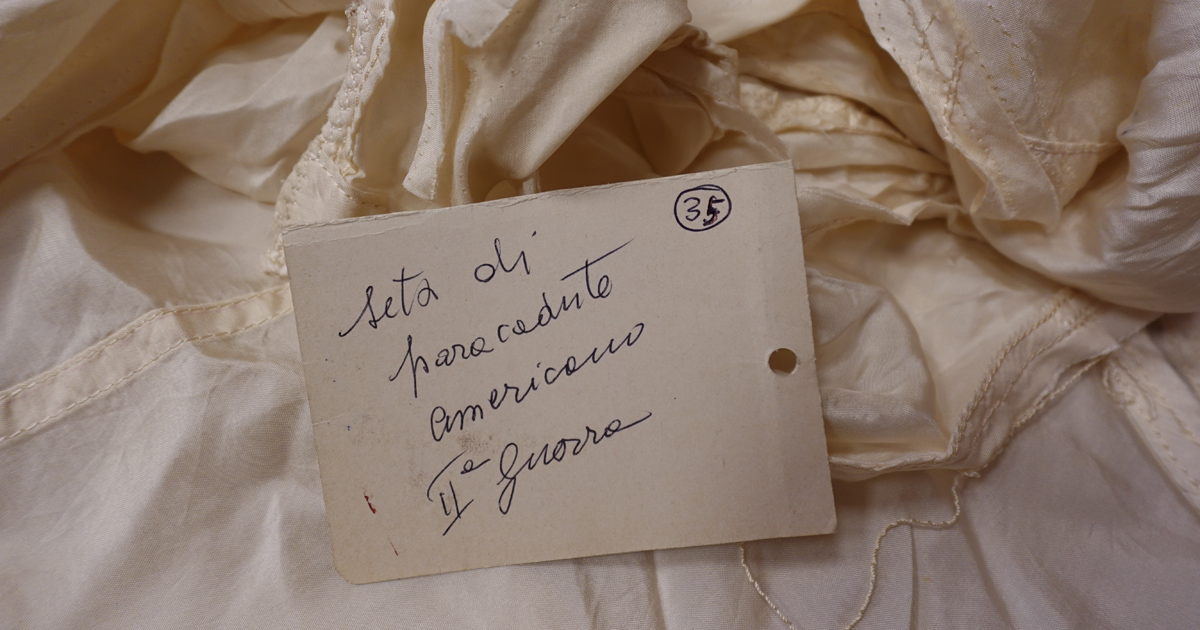 35
seta di
paracadute
americano
IIª Guerra